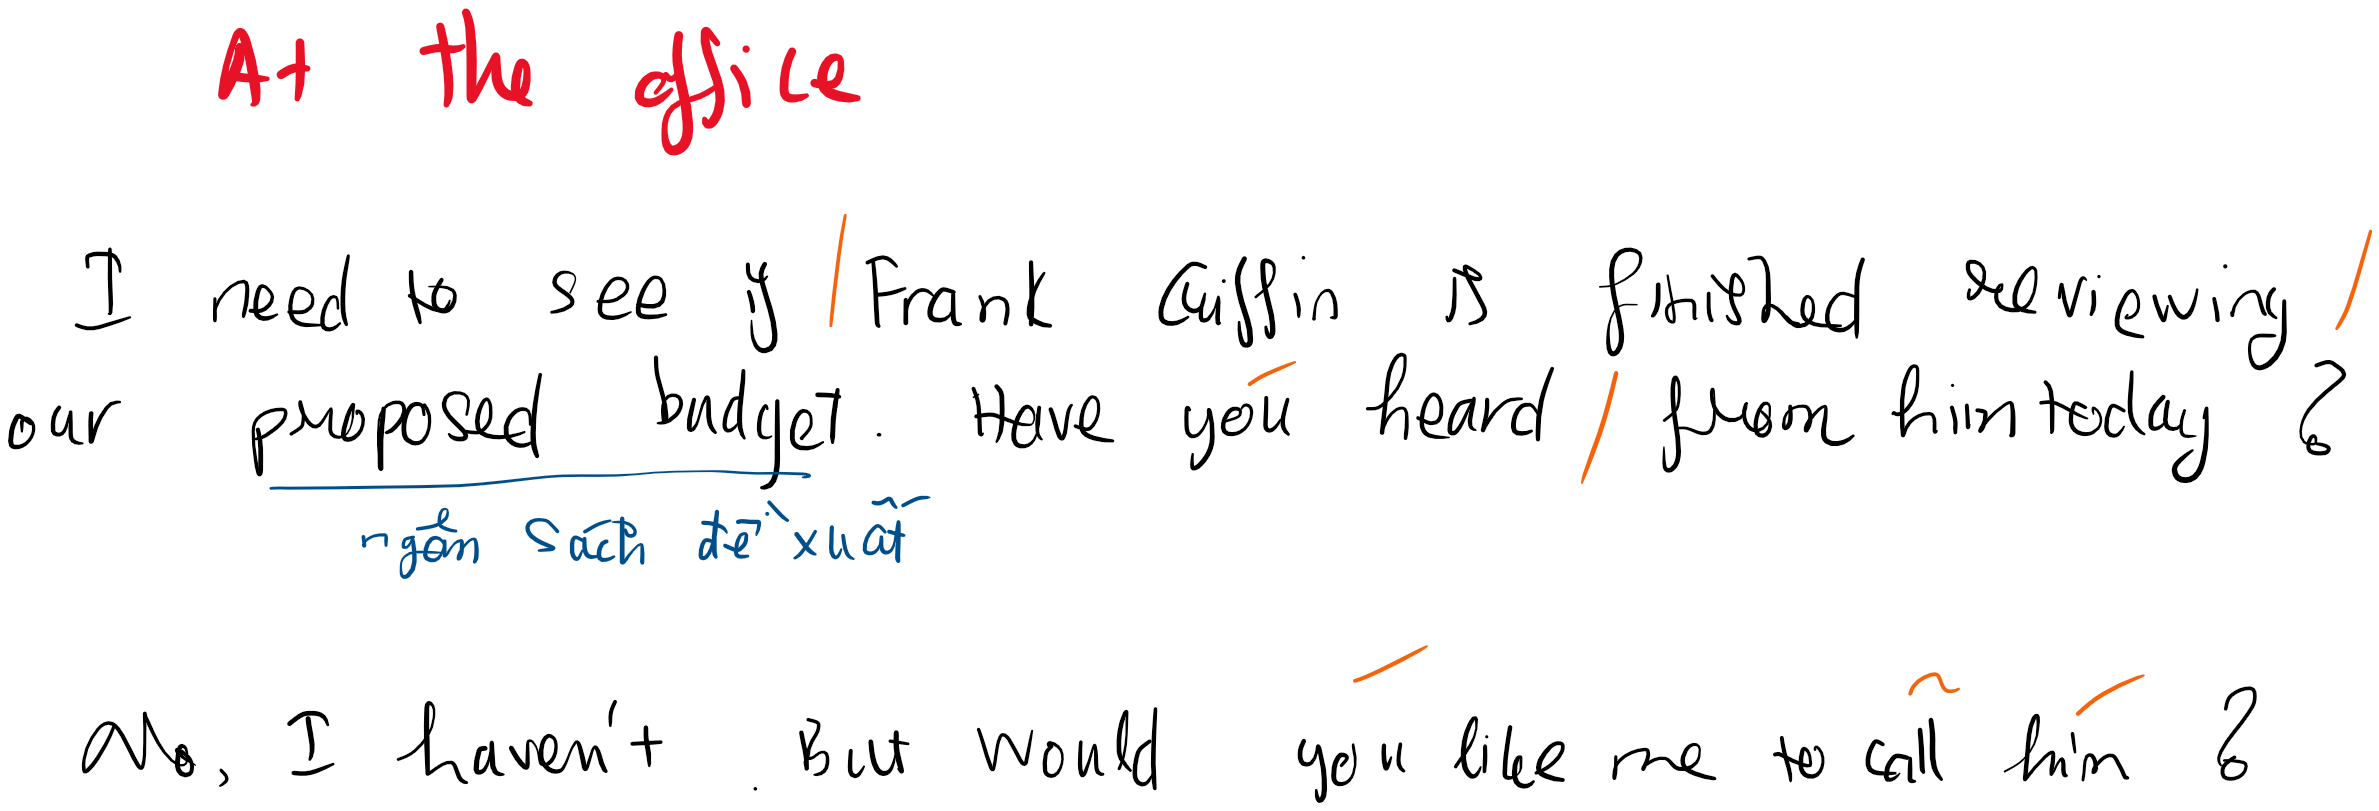 At the office
I need to see if / Frank Griffin is finished reviewing /
our proposed budget. Have you heard / from him today ?
ngân sách đề xuất
No, I haven't. But would you like me to call him ?